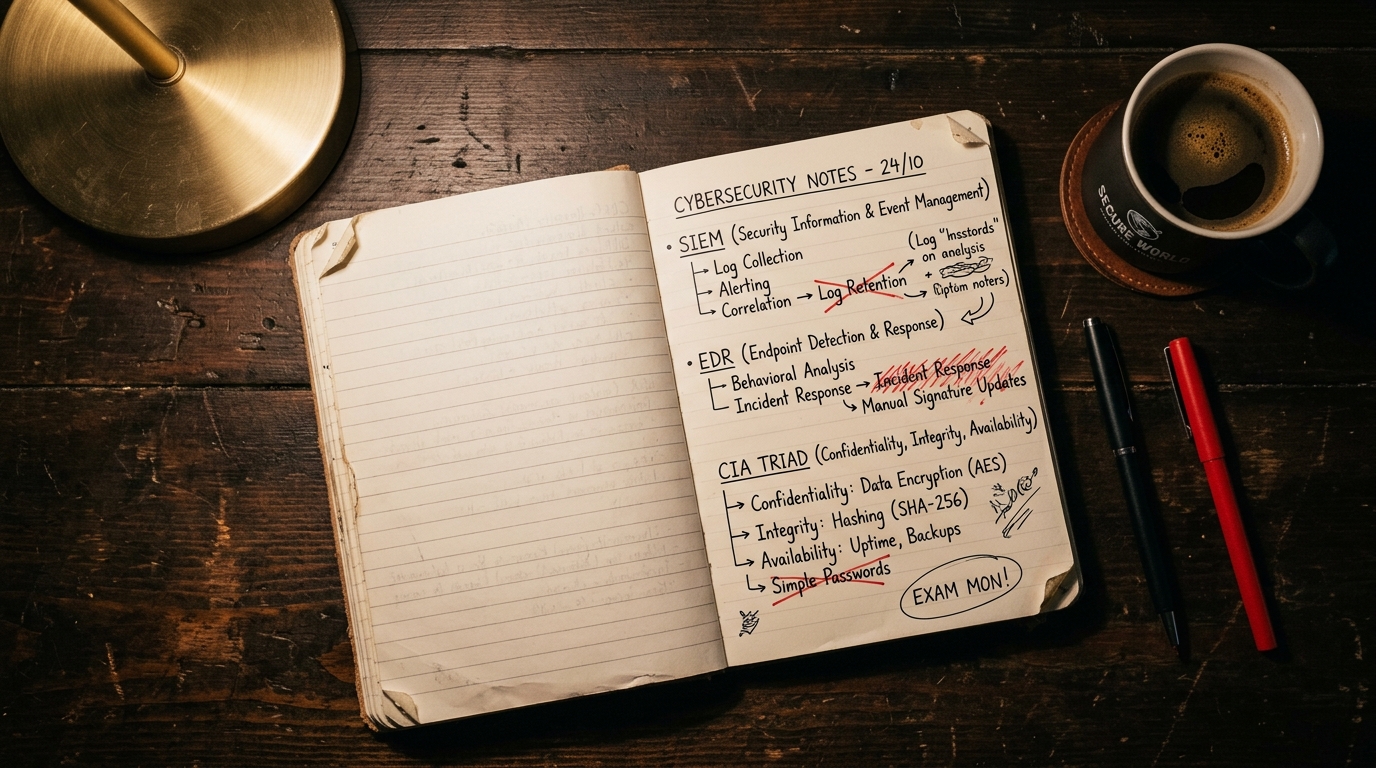 CYBERSECURITY NOTES - 24/10
• SIEM (Security Information & Event Management)
Log Collection
Alerting
Correlation → Log Retention
(Log "Insstords"
on analysis
+
noters)
• EDR (Endpoint Detection & Response)
Behavioral Analysis
Incident Response → Incident Response
Manual Signature Updates
CIA TRIAD (Confidentiality, Integrity, Availability)
Confidentiality: Data Encryption (AES)
Integrity: Hashing (SHA-256)
Availability: Uptime, Backups
Simple Passwords
EXAM MON!
SECURE WORLD